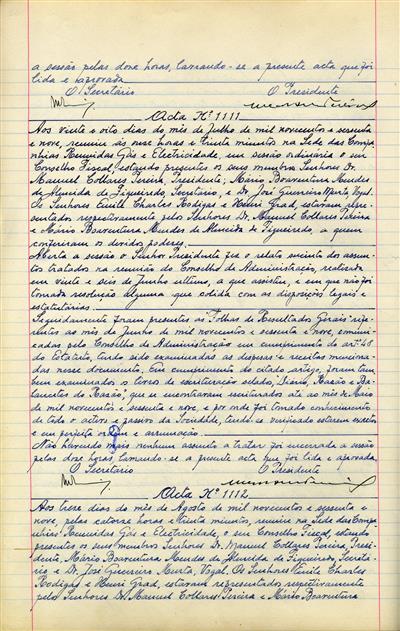 a sessão pelas doze horas, lavrando-se a presente acta que foi
lida e aprovada.
O Secretário O Presidente
Acta Nº 1111
Aos vinte e oito dias do mês de Julho de mil novecentos e sessenta
e nove, reuniu às onze horas e trinta minutos na Sede das Compa
nhias Reunidas Gás e Electricidade, em sessão ordinária o seu
Conselho Fiscal, estando presentes os seus membros Senhores Dr.
Manuel Collares Pereira, Presidente; Mário Boaventura Mendes
de Almeida de Figueiredo, Secretário, e Dr. José Guerreiro Murta, Vogal.
Os Senhores Emile Charles Hodigas e Henri Grad, estavam repre-
sentados respectivamente pelos Senhores Dr. Manuel Collares Pereira
e Mário Boaventura Mendes de Almeida de Figueiredo, a quem
conferiram os devidos poderes.
Aberta a sessão o Senhor Presidente fez o relato sucinto dos assun-
tos tratados na reunião do Conselho de Administração, realizada
em vinte e seis de Junho último, a que assistiu, e em que não foi
tomada resolução alguma que colida com as disposições legais e
estatutárias.
Seguidamente foram presentes as "Folhas de Resultados Gerais" refe-
rentes ao mês de Junho de mil novecentos e sessenta e nove, comuni-
cadas pelo Conselho de Administração em cumprimento do artº 48
do Estatuto, tendo sido examinadas as despesas e receitas menciona-
das nesse documento. Em cumprimento do citado artigo, foram tam
bém examinados os livros de escrituração selados, "Diário, Razão e Ba-
lancetes do Razão", que se encontravam escriturados até ao mês de Maio
de mil novecentos e sessenta e nove, e por onde foi tomado conhecimento
de todo o activo e passivo da Sociedade, tendo-se verificado estarem exactos
e em perfeita ordem e arrumação.
Não havendo mais nenhum assunto a tratar foi encerrada a sessão
pelas doze horas, lavrando-se a presente acta que foi lida e aprovada.
O Secretário O Presidente
Acta Nº 1112
Aos treze dias do mês de Agosto de mil novecentos e sessenta e
nove, pelas catorze horas e trinta minutos, reuniu na Sede das Compa
nhias Reunidas Gás e Electricidade, o seu Conselho Fiscal, estando
presentes os seus membros Senhores Dr. Manuel Collares Pereira, Presi-
dente, Mário Boaventura Mendes de Almeida de Figueiredo, Secretá-
rio e Dr. José Guerreiro Murta, Vogal. Os Senhores Emile Charles
Hodigas e Henri Grad, estavam representados respectivamente
pelos Senhores Dr. Manuel Collares Pereira e Mário Boaventura